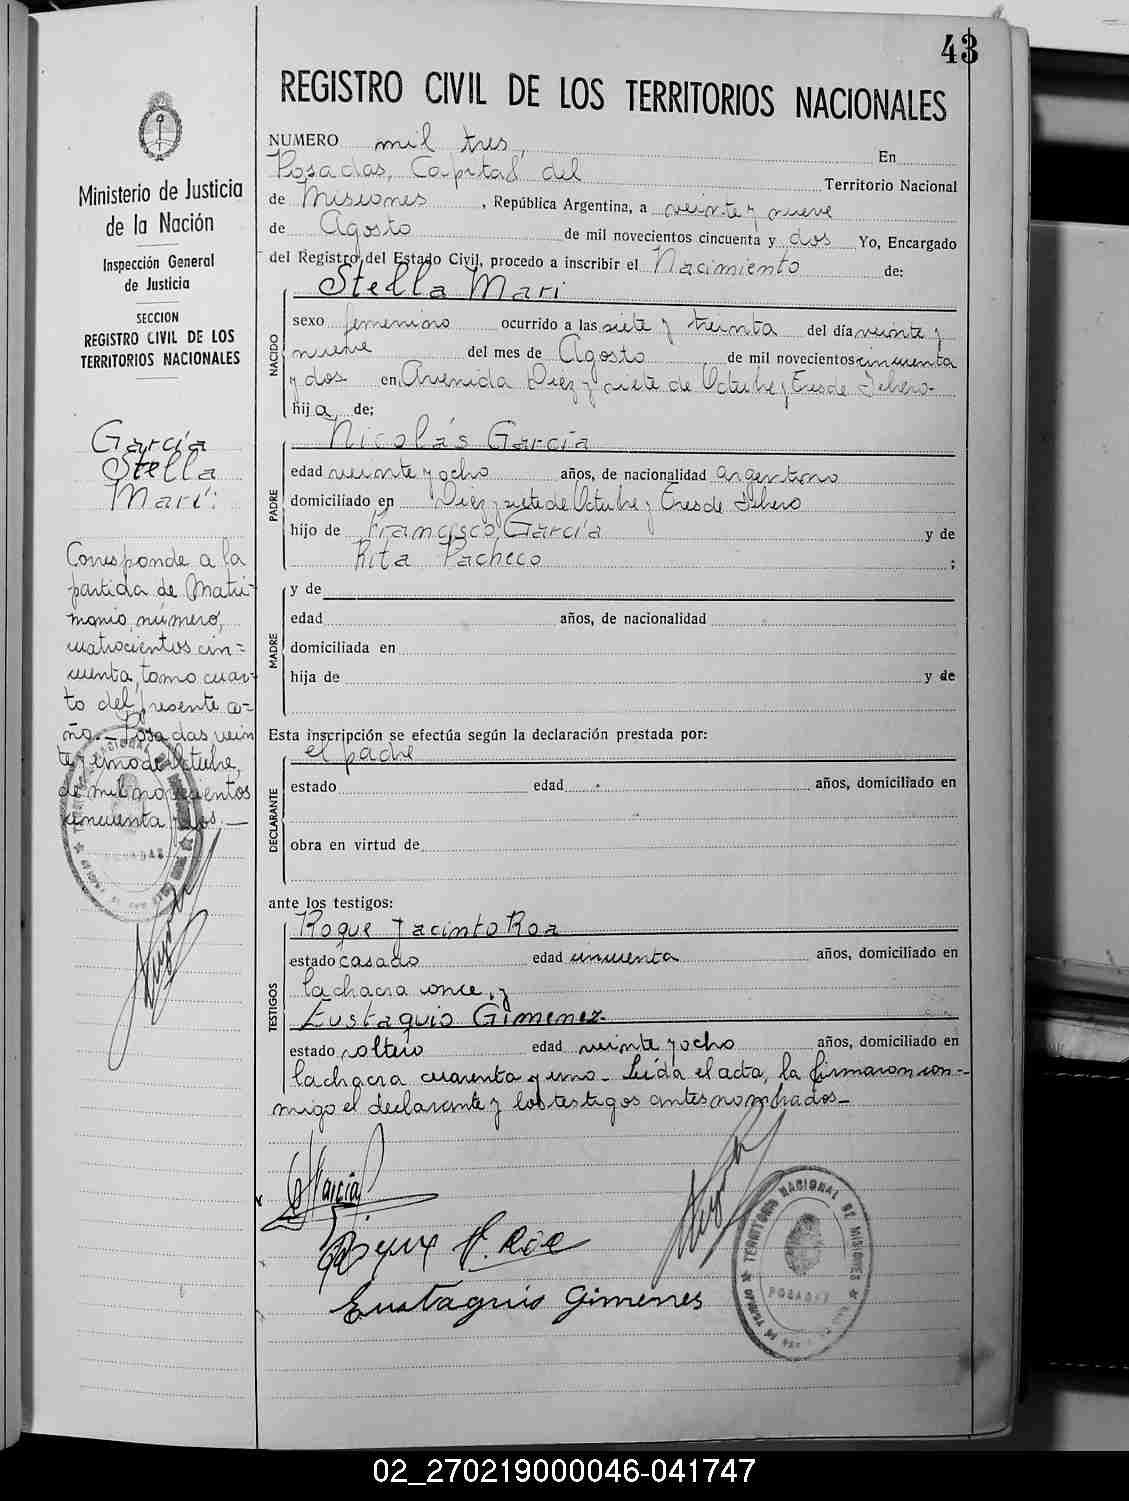 43
REGISTRO CIVIL DE LOS TERRITORIOS NACIONALES
Ministerio de Justicia
de la Nación
Inspección General
de Justicia
SECCION
REGISTRO CIVIL DE LOS
TERRITORIOS NACIONALES
García
Stella
Mari:
Corresponde a la
partida de Matri-
monio, número,
cuatrocientos cin=
cuenta, tomo cuar-
to del presente a=
ño.- Posadas vein
te y uno de Octubre,
de mil novecientos
cincuenta y dos.-
NUMERO mil tres, En
Posadas, Capital del Territorio Nacional
de Misiones, República Argentina, a veinte y nueve
de Agosto de mil novecientos cincuenta y dos Yo, Encargado
del Registro del Estado Civil, procedo a inscribir el Nacimiento de:
NACIDO
Stella Mari
sexo femenino ocurrido a las siete y treinta del día veinte y
nueve del mes de Agosto de mil novecientos cincuenta
y dos en Avenida Diez y siete de Octubre y Tres de Febrero-
hija de:
PADRE
Nicolás García
edad veinte y ocho años, de nacionalidad argentino
domiciliado en Diez y siete de Octubre y Tres de Febrero
hijo de Francisco García y de
Rita Pacheco ;
MADRE
y de
edad años, de nacionalidad
domiciliada en
hija de y de
Esta inscripción se efectúa según la declaración prestada por:
DECLARANTE
el padre
estado edad años, domiciliado en
obra en virtud de
ante los testigos:
TESTIGOS
Roque Jacinto Roa
estado casado edad cincuenta años, domiciliado en
la chacra once, y
Eustaquio Gimenez.
estado soltero edad veinte y ocho años, domiciliado en
la chacra cuarenta y uno- Leída el acta, la firmaron con-
migo el declarante y los testigos antes nombrados-
García
Roque J. Roa
Eustaquio Gimenes
TERRITORIO NACIONAL DE MISIONES
POSADAS
02_270219000046-041747